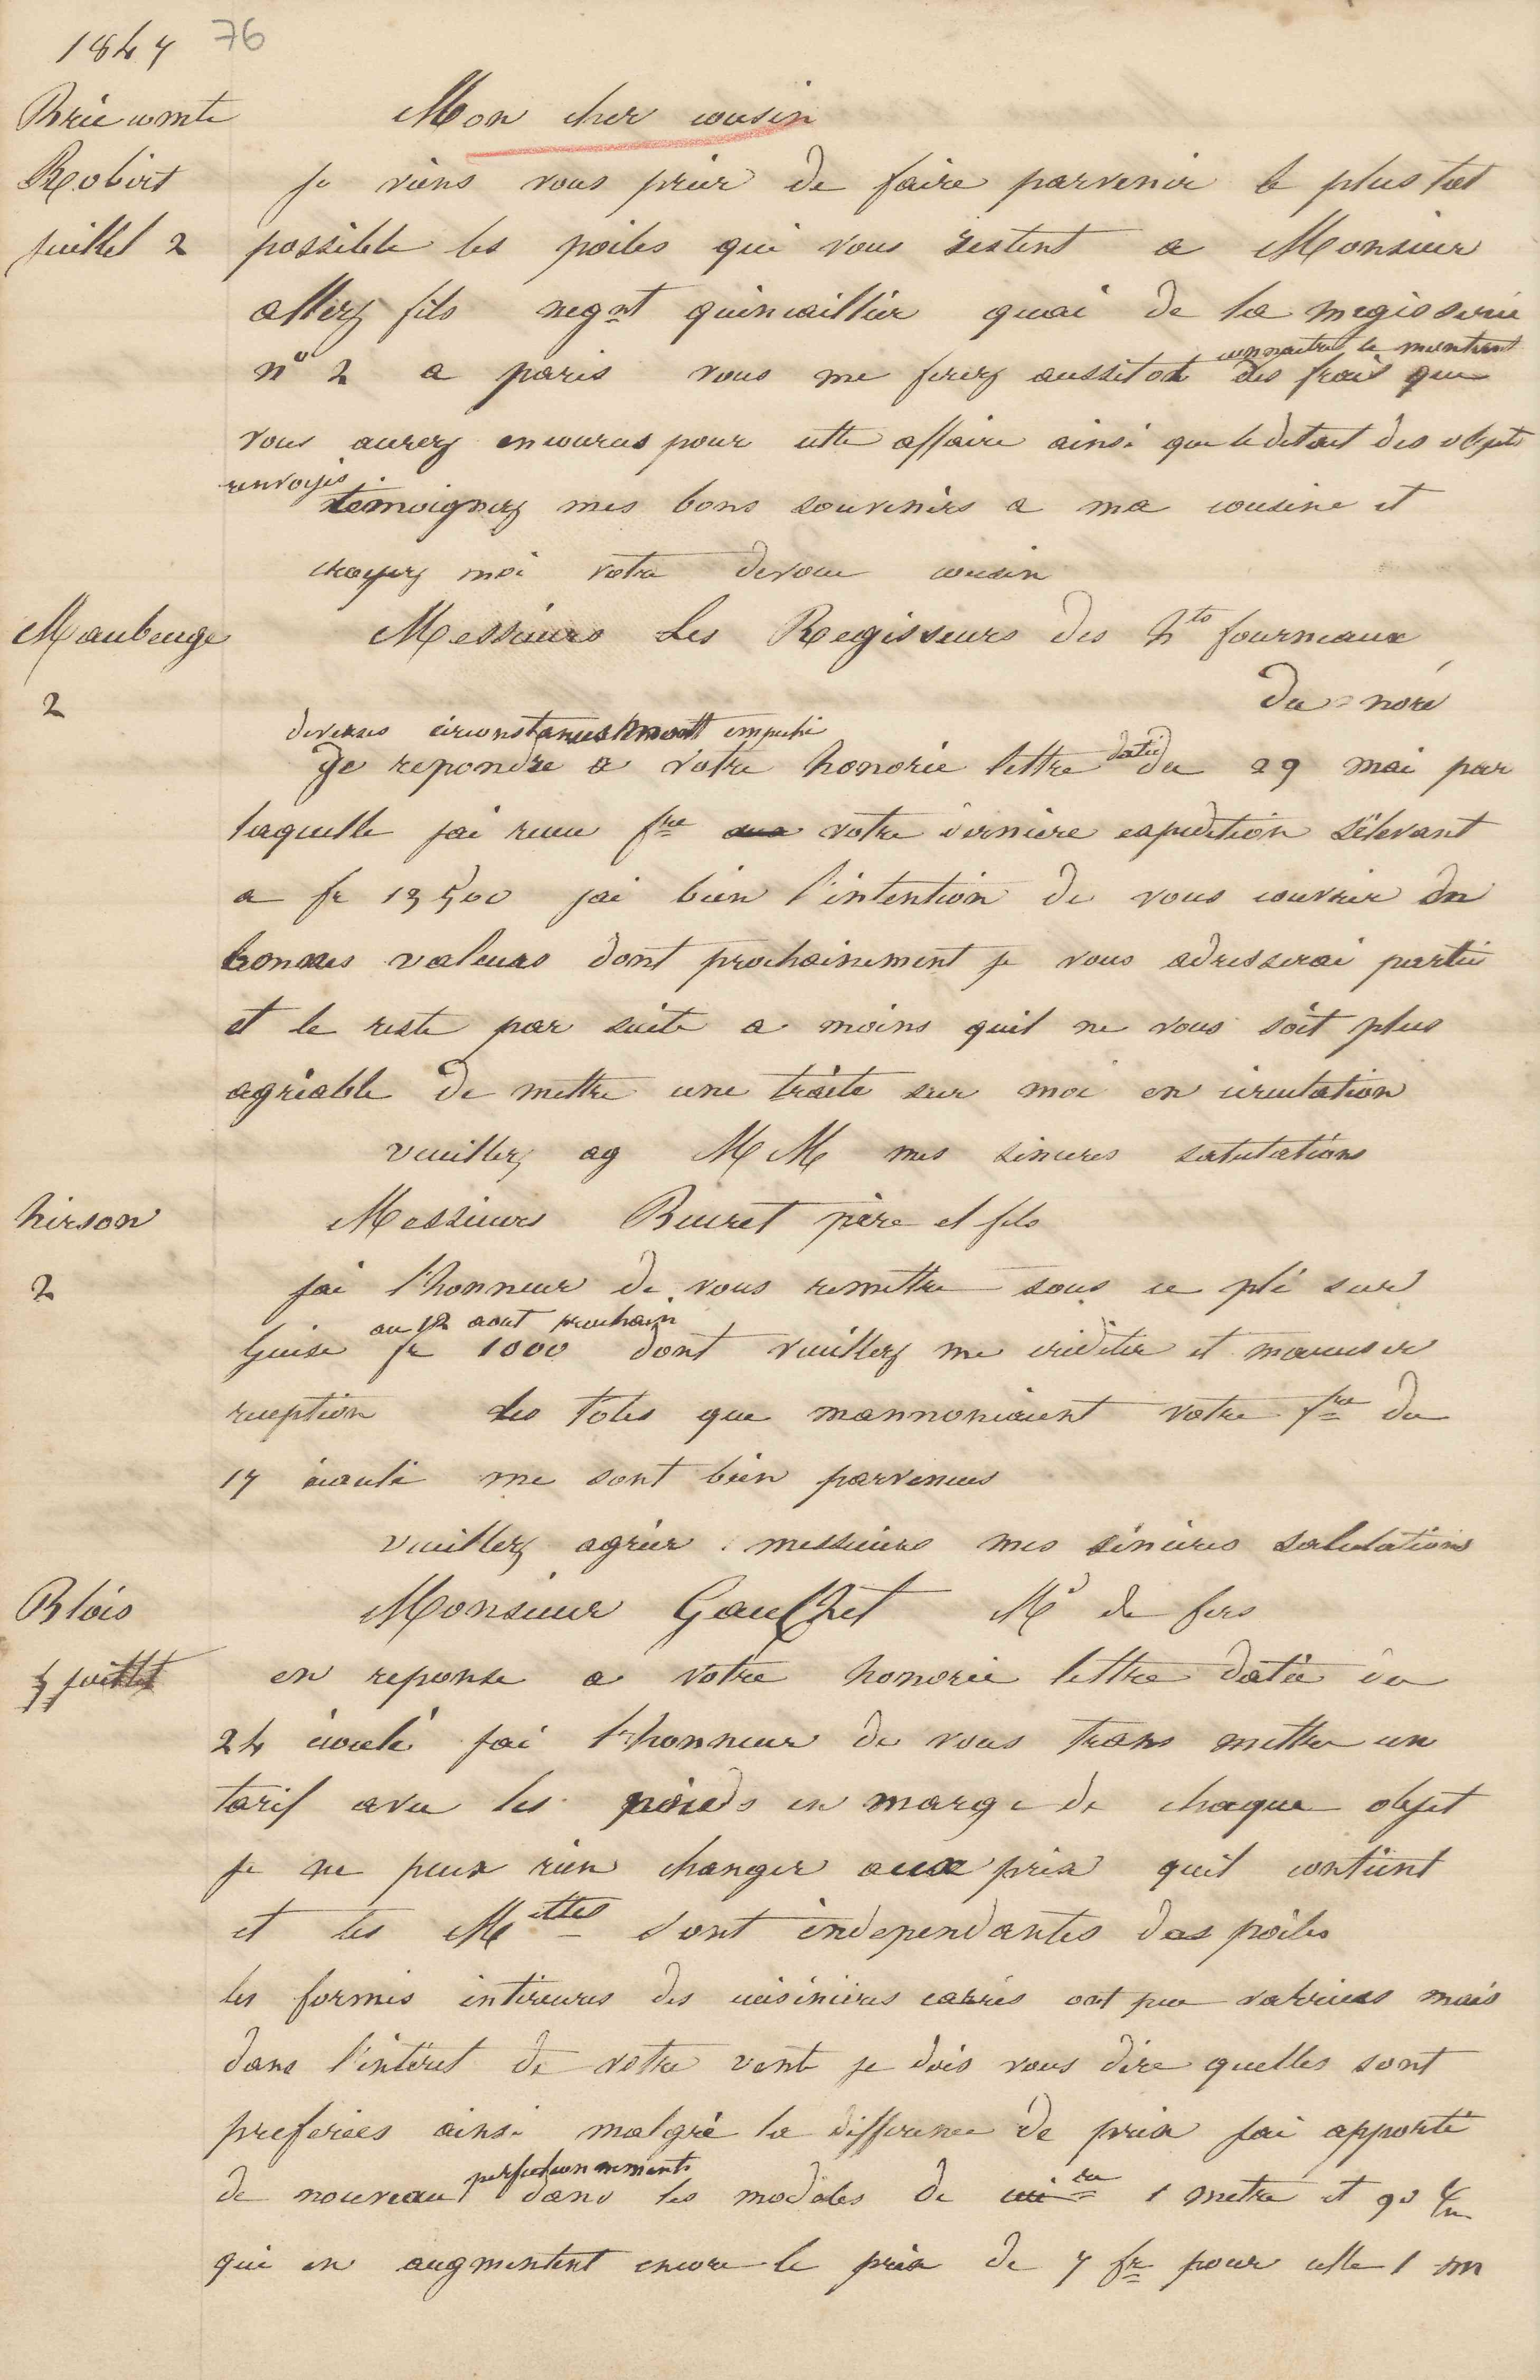 1847 76
Brie comte Mon cher cousin
Robert je viens vous prier de faire parvenir le plus tot
juillet 2 possible les poiles qui vous restent a Monsieur
allez fils negnt quincaillier quai de la megisserie
connaitre le montant
n° 2 a paris vous me ferez aussitot des frais que
vous aurez encourus pour cette affaire ainsi que le detail des objets
renvoyés.
temoignez mes bons souvenirs a ma cousine et
croyez moi votre devoue cousin
Maubeuge Messieurs Les Regisseurs des hts fourneaux
2 du nord
diverses circonstances mont empeché
de repondre a votre honorée lettre datée du 29 mai par
laquelle jai recu fre votre derniere expedition sélevant
a fr 13500 jai bien l'intention de vous couvrir en
bonnes valeurs dont prochainement je vous adresserai partie
et le reste par suite a moins quil ne vous soit plus
agréable de mettre une traite sur moi en circulation
veuillez ag MM mes sinceres salutations
hirson Messieurs Buiret père et fils
2 jai l'honneur de vous remettre sous ce pli sur
au 12 aout prochain
Guise fr 1000 dont veuillez me créditer et maccuser
reception Les toles que mannoncaient votre fre du
17 écoulé me sont bien parvenues
veuillez agréer messieurs mes sincères salutations
Blois Monsieur Gauchet Md de fers
juillet en reponse a votre honorée lettre datée du
24 écoulé jai l'honneur de vous trans mettre un
tarif avec les poieds en marge de chaque objet
je ne peux rien changer aux prix quil contient
et les Mettes sont independantes des poiles
les formes intérieures des cuisinières carrés ont peu varriées mais
dans l'intéret de votre vente je dois vous dire quelles sont
preferées ainsi malgré la difference de prix jai apporté
perfectionnements
de nouveau dans les modeles de 1 metre et 90 c/m
qui en augmentent encore le prix de 7 fr pour celle 1 m